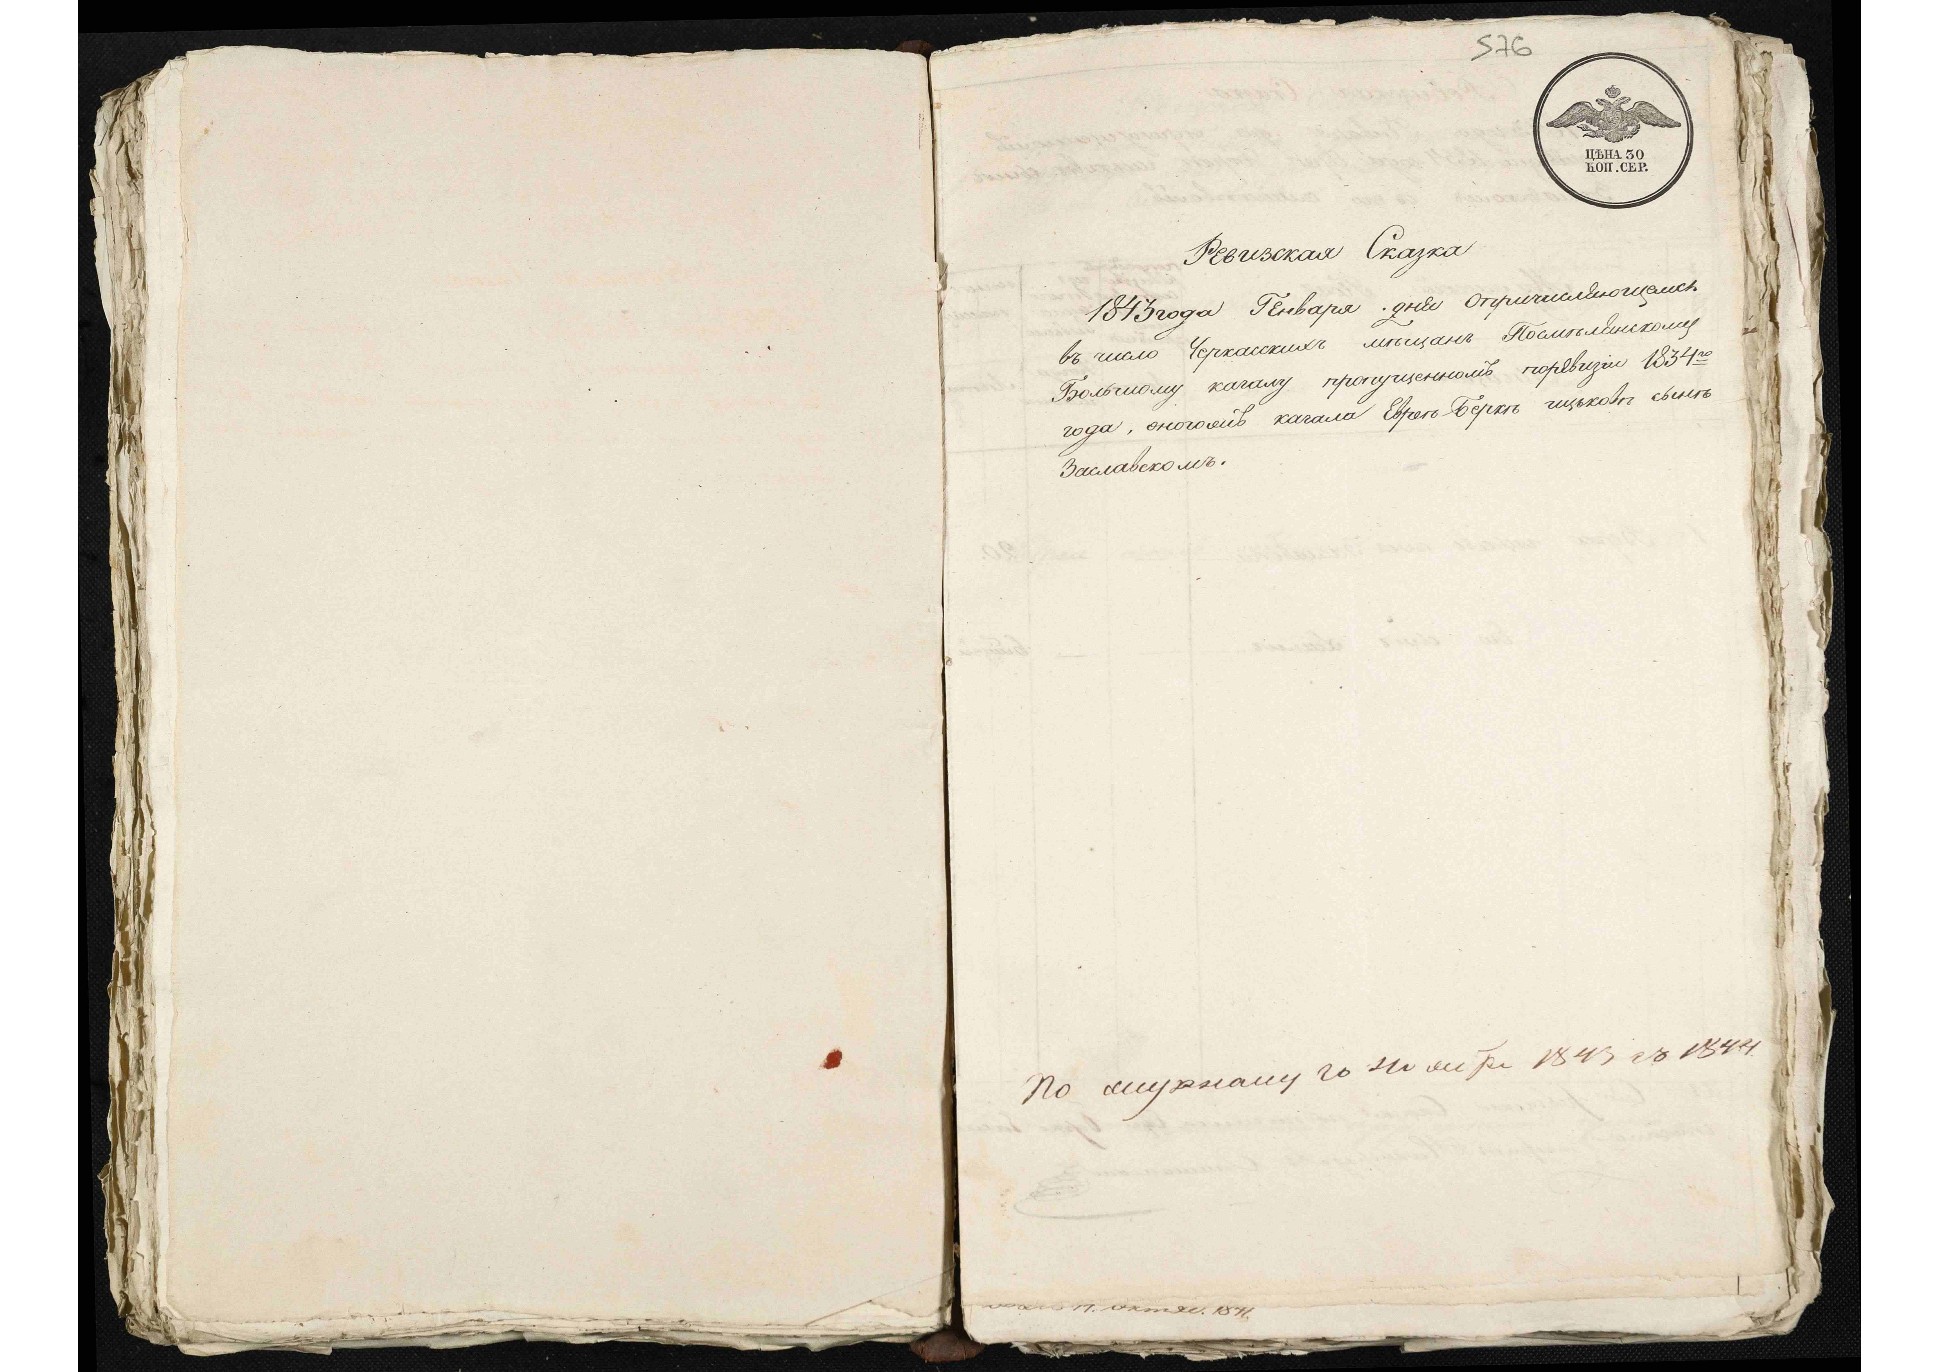 576
ЦѢНА 30
КОП. СЕР.
Ревизская Сказка
1843 года Генваря дня опричисляющемся
въ число Черкасскихъ мѣщанъ Посмѣлянскому
Большому кагалу пропущенномъ поревизіи 1834го
года, оногожъ кагала Евреѣ Беркѣ Ицьковѣ сынѣ
Заславскомъ.
По журналу 10 ноября 1843 съ 1844
17. октяб. 184